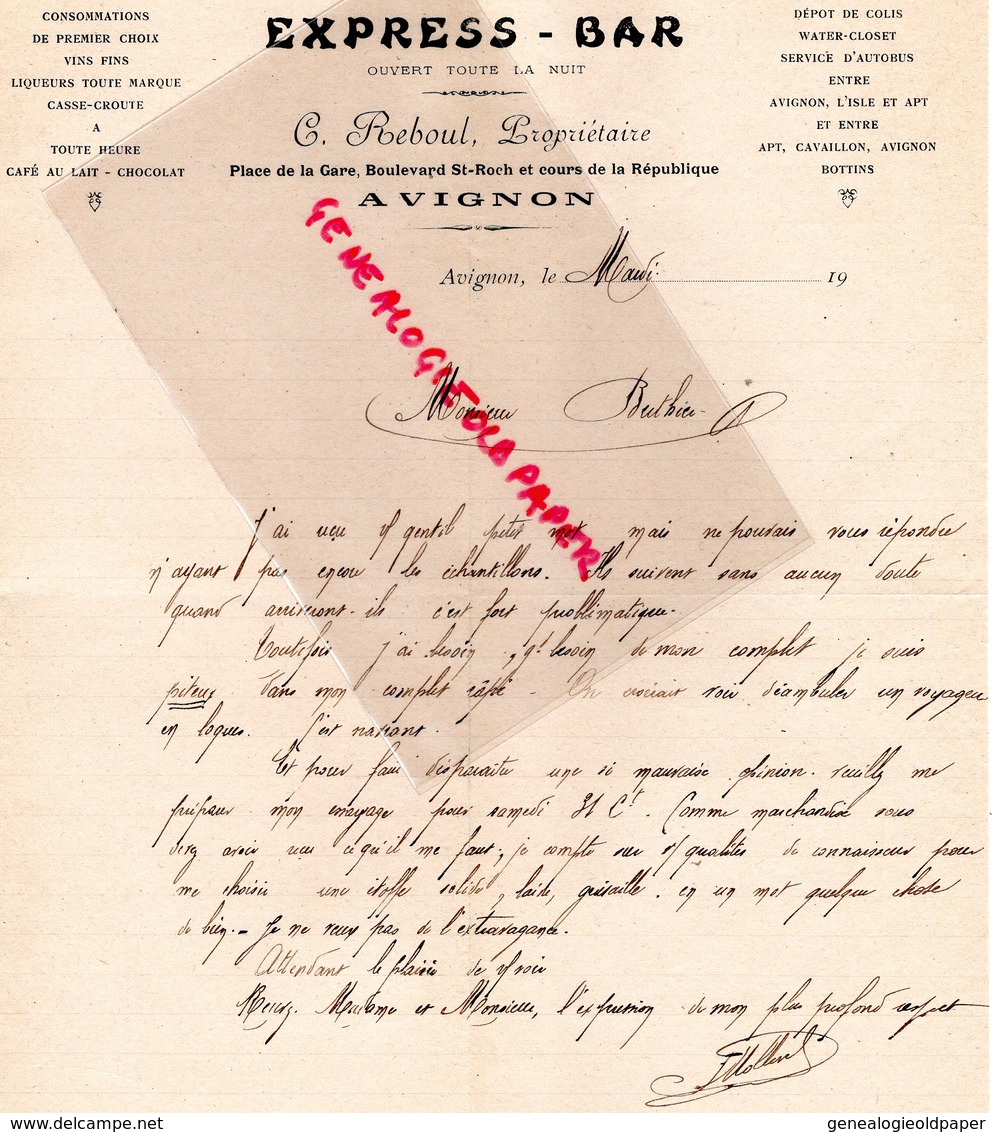 CONSOMMATIONS
DE PREMIER CHOIX
VINS FINS
LIQUEURS TOUTE MARQUE
CASSE-CROUTE
A
TOUTE HEURE
CAFÉ AU LAIT - CHOCOLAT
EXPRESS - BAR
OUVERT TOUTE LA NUIT
C. Reboul, Propriétaire
Place de la Gare, Boulevard St-Roch et cours de la République
AVIGNON
DÉPOT DE COLIS
WATER-CLOSET
SERVICE D'AUTOBUS
ENTRE
AVIGNON, L'ISLE ET APT
ET ENTRE
APT, CAVAILLON, AVIGNON
BOTTINS
GENEALOGIE OLD PAPER
Avignon, le Mardi 19
Monsieur Buthier
J'ai reçu gentil petit mot mais ne pouvais vous répondre
n'ayant pas encore les échantillons. Ils suivent sans aucun doute
quand arriveront-ils c'est fort problématique.
Toutefois j'ai besoin, gd besoin de mon complet je suis
piteux dans mon complet râpé - On croirait voir déambuler un voyageur
en loques. C'est navrant.
Et pour faire disparaitre une si mauvaise opinion. veuillez me
préparer mon essayage pour samedi 31 Ct. Comme marchandise vous
devez avoir reçu ce qu'il me faut; je compte sur qualités de connaisseur pour
me choisir une étoffe solide, laide, grisaille. en un mot quelque chose
de bien. - Je ne veux pas de l'extravagance.
Attendant le plaisir de voir
Recevez. Madame et Monsieur, l'expression de mon plus profond respect
delcampe.net
genealogieoldpaper